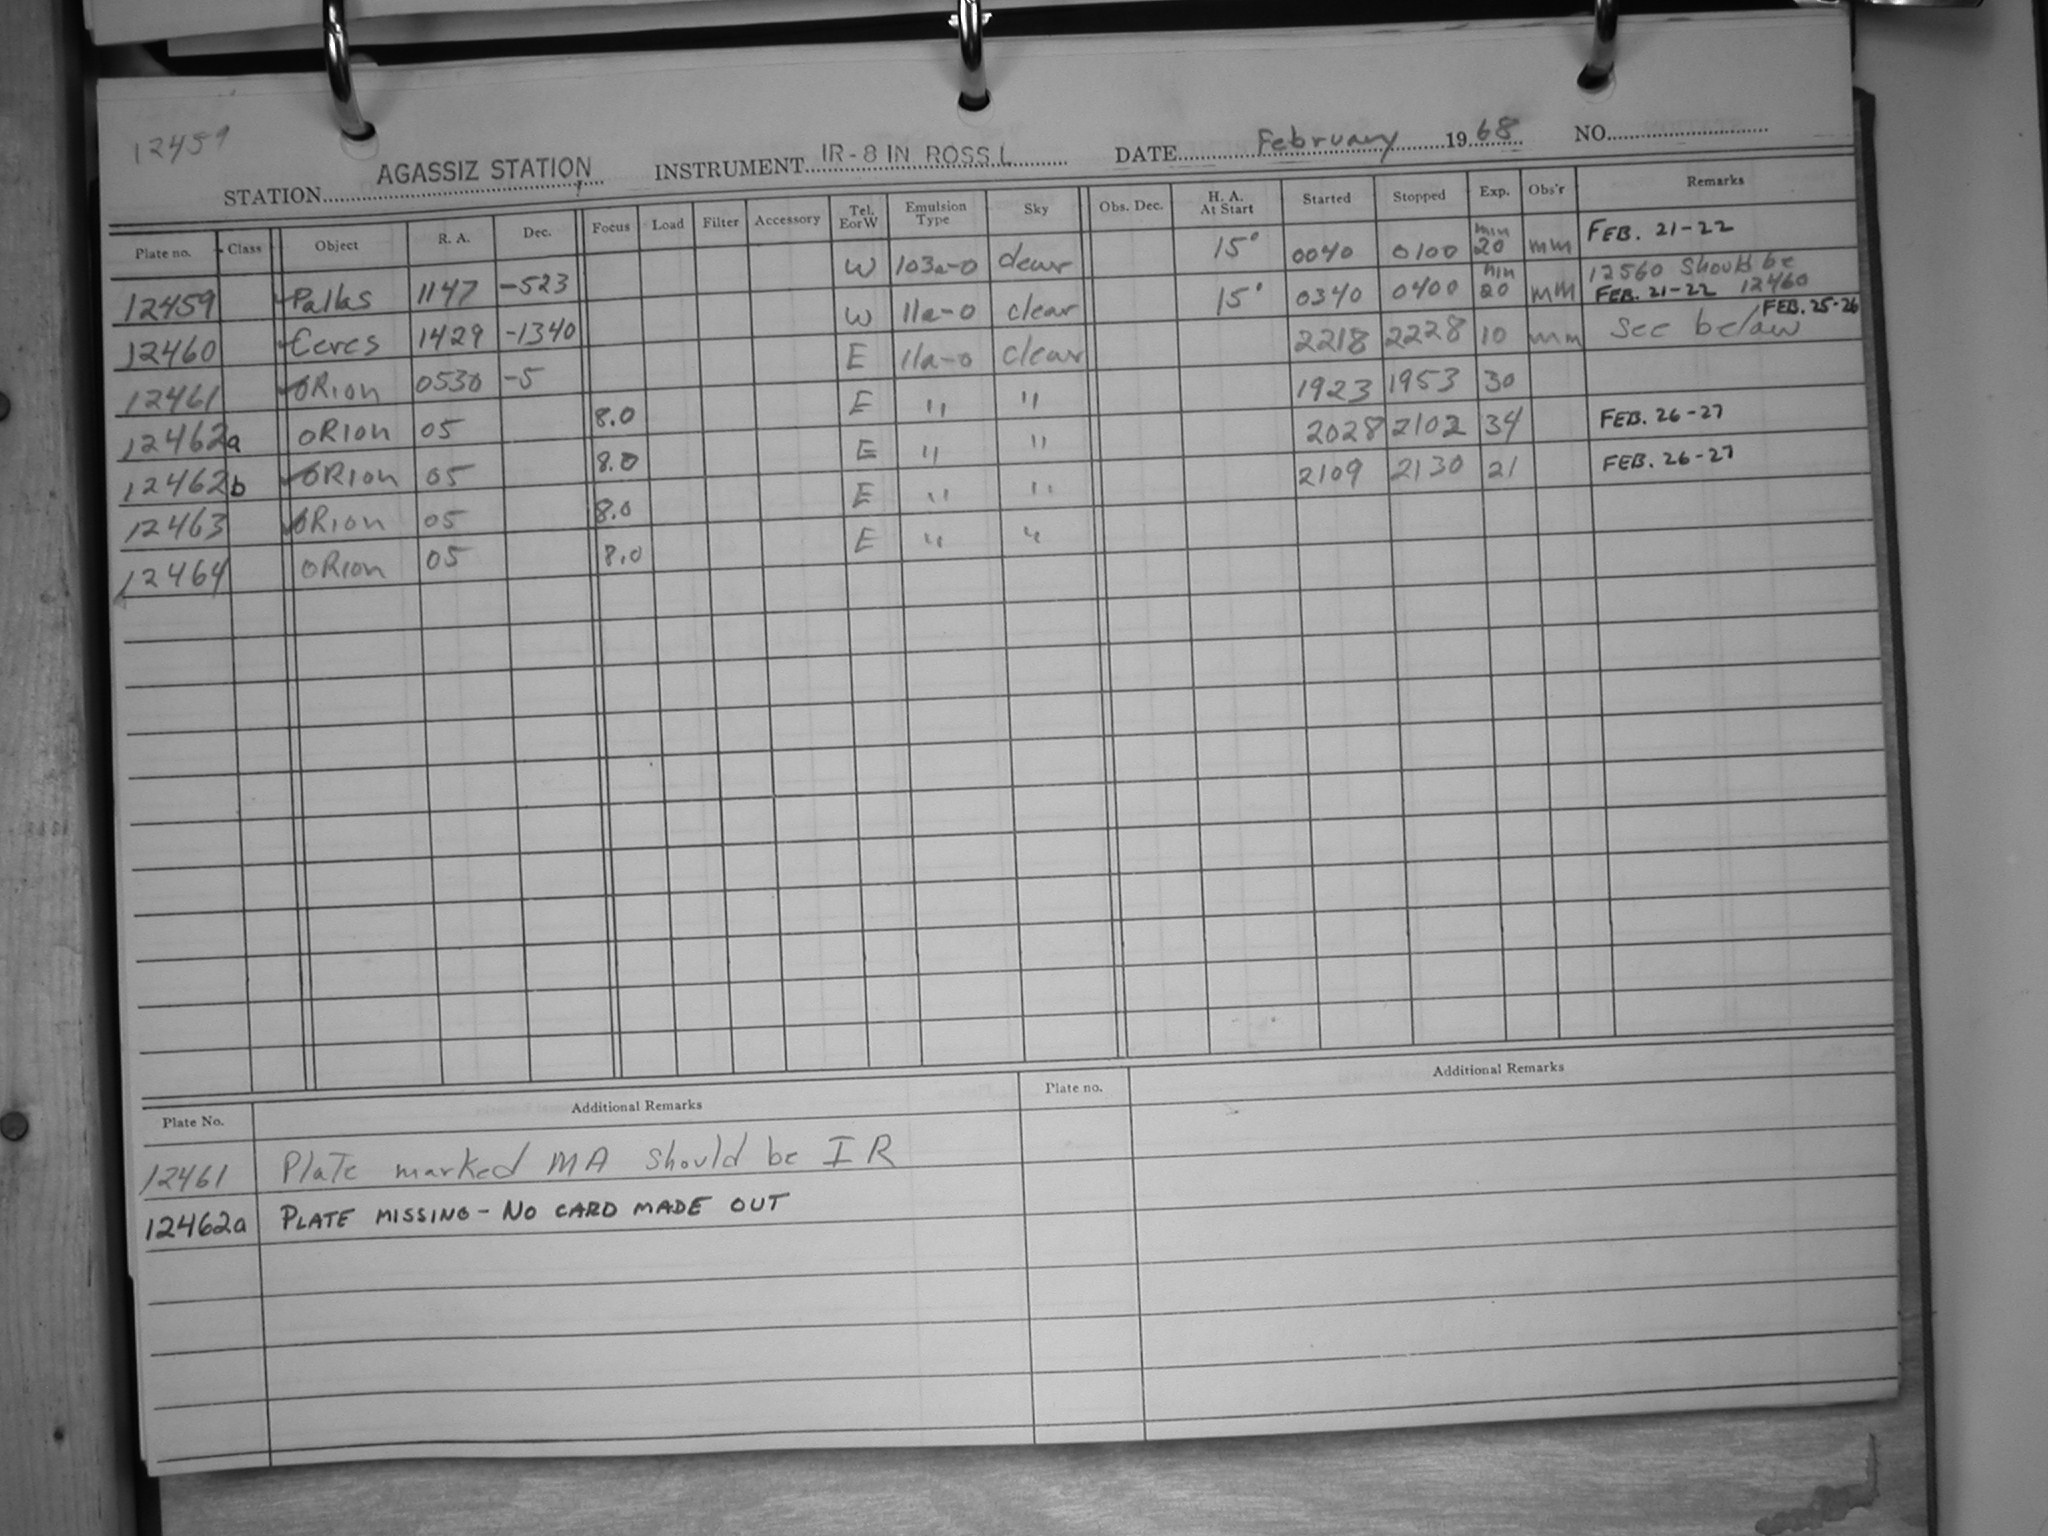 12459
STATION AGASSIZ STATION INSTRUMENT IR-8 IN ROSS L DATE February 1968 NO.
Plate no. Class Object R. A. Dec. Focus Load Filter Accessory Tel. E or W Emulsion Type Sky Obs. Dec. H. A. At Start Started Stopped Exp. Obs'r Remarks
12459 Pallas 1147 -523 W 103a-0 clear 15° 0040 0100 min 20 mm FEB. 21-22
12460 Ceres 1429 -1340 W 11a-0 clear 15° 0340 0400 min 20 mm 12560 should be 12460 FEB. 21-22
12461 ORion 0530 -5 E 11a-0 clear 2218 2228 10 mm see below FEB. 25-26
12462a ORion 05 8.0 E " " 1923 1953 30
12462b ORion 05 8.0 E " " 2028 2102 34 FEB. 26-27
12463 ORion 05 8.0 E " " 2109 2130 21 FEB. 26-27
12464 ORion 05 8.0 E " "
Plate No. Additional Remarks Plate no. Additional Remarks
12461 Plate marked MA should be IR
12462a PLATE MISSING - NO CARD MADE OUT